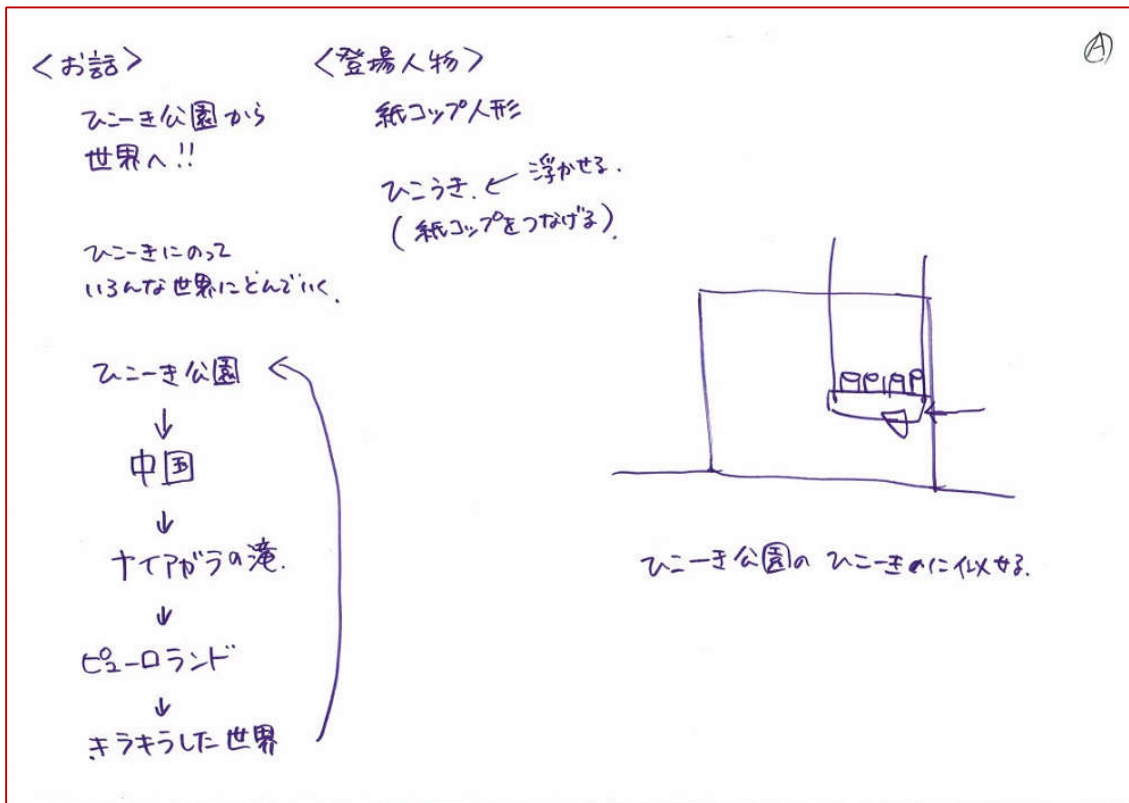 <お話>
ひこーき公園から
世界へ!!
ひこーきにのって
いろんな世界にとんでいく.
ひこーき公園
↓
中国
↓
ナイアガラの滝.
↓
ピューロランド
↓
キラキラした世界
<登場人物>
紙コップ人形
ひこうき. ← 浮かせる.
(紙コップをつなげる).
Ⓐ
ひこーき公園の ひこーきに似せる.